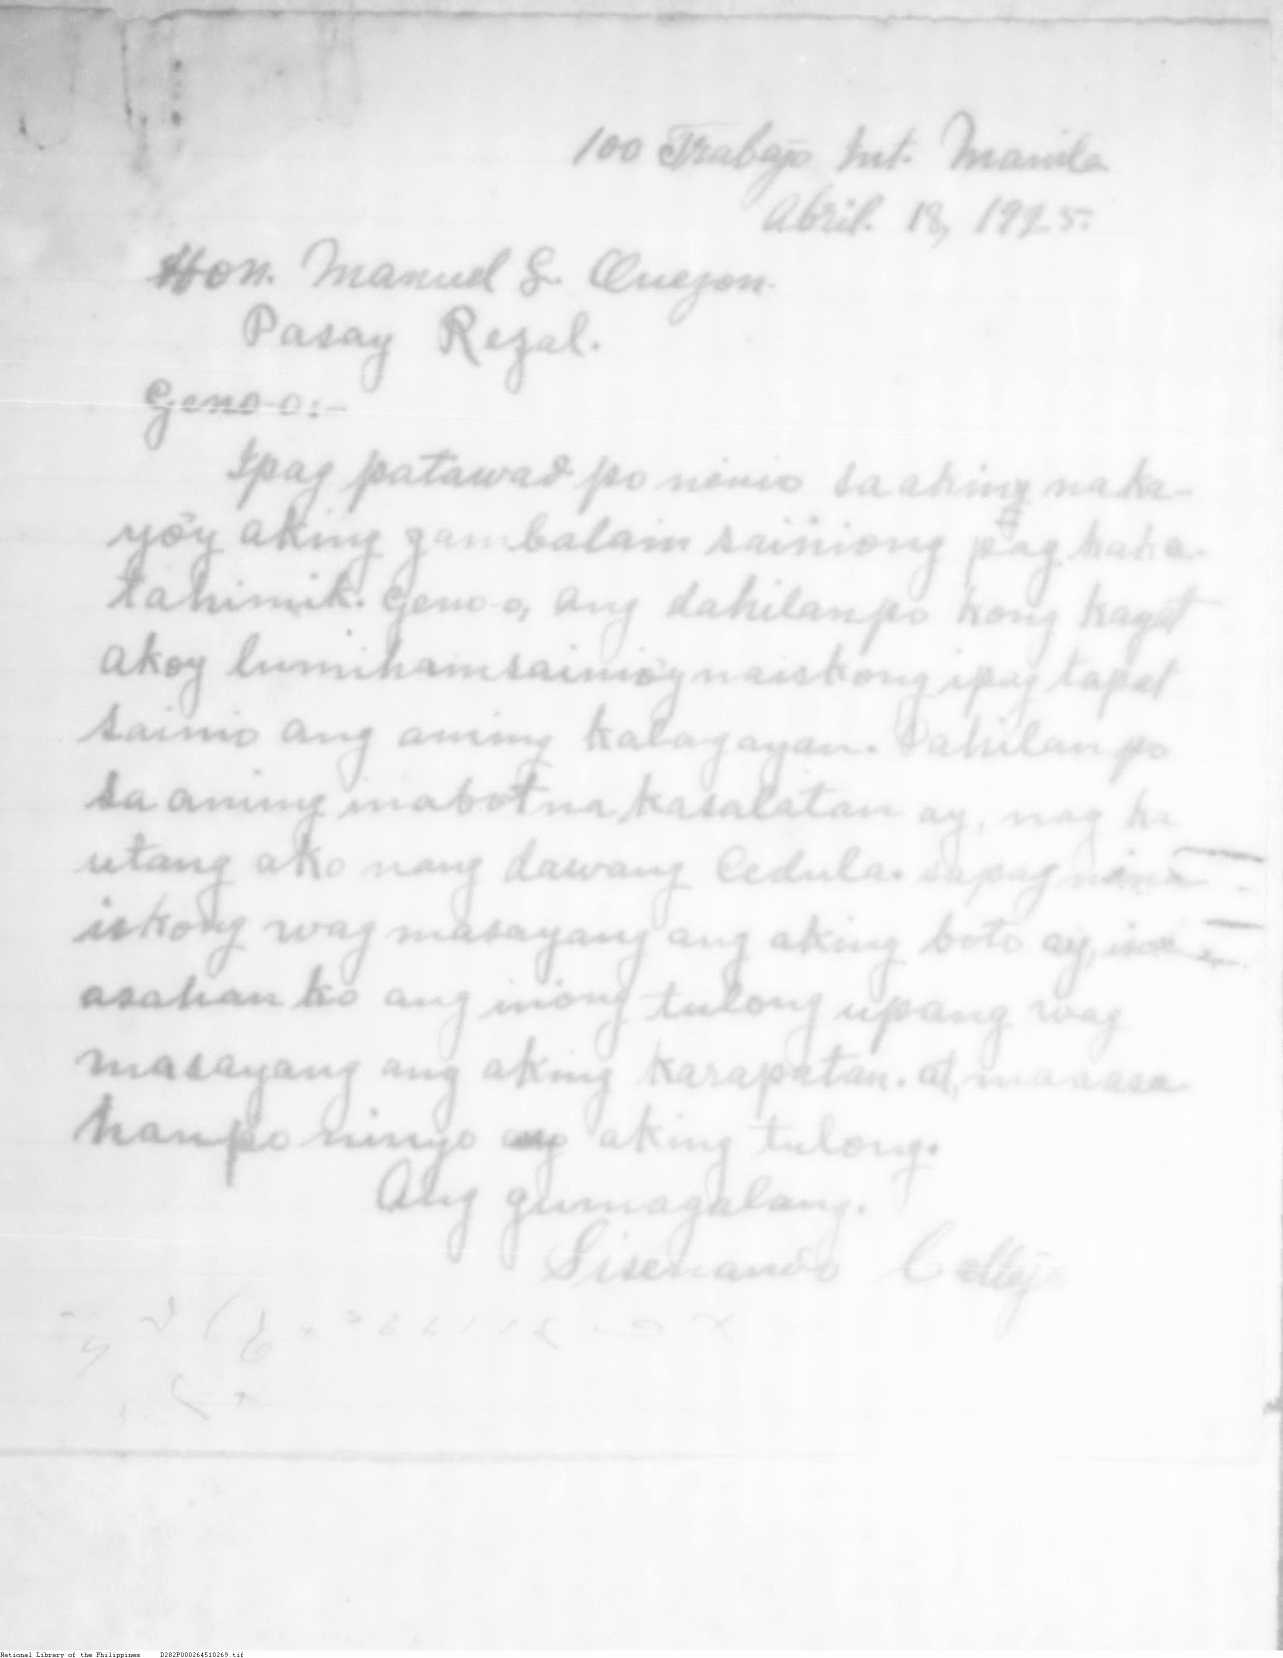 100 Trabajo Int. Manila
Abril. 18, 1925.
Hon. Manuel L. Quezon.
Pasay Rezal.
Geno-o:-
Ipag patawad po ninio sa aking naka-
yóy aking gambalain sainiong pag kaka-
tahimik. Geno-o, ang dahilan po kong bagat
akoy lumiham sainioy nais kong ipag tapat
sainio ang aming kalagayan. Dahilan po
sa aming inabot na kasalatan ay, nag ka
utang ako nang dawang Cedula. sapag nina
is kong wag masayang ang aking boto ay, ina
asahan ko ang iniong tulong upang wag
masayang ang aking karapatan. at, maaasa
han po ninyo ang aking tulong.
Ang gumagalang.
Sisenando
National Library of the Philippines D282P000264510269.tif